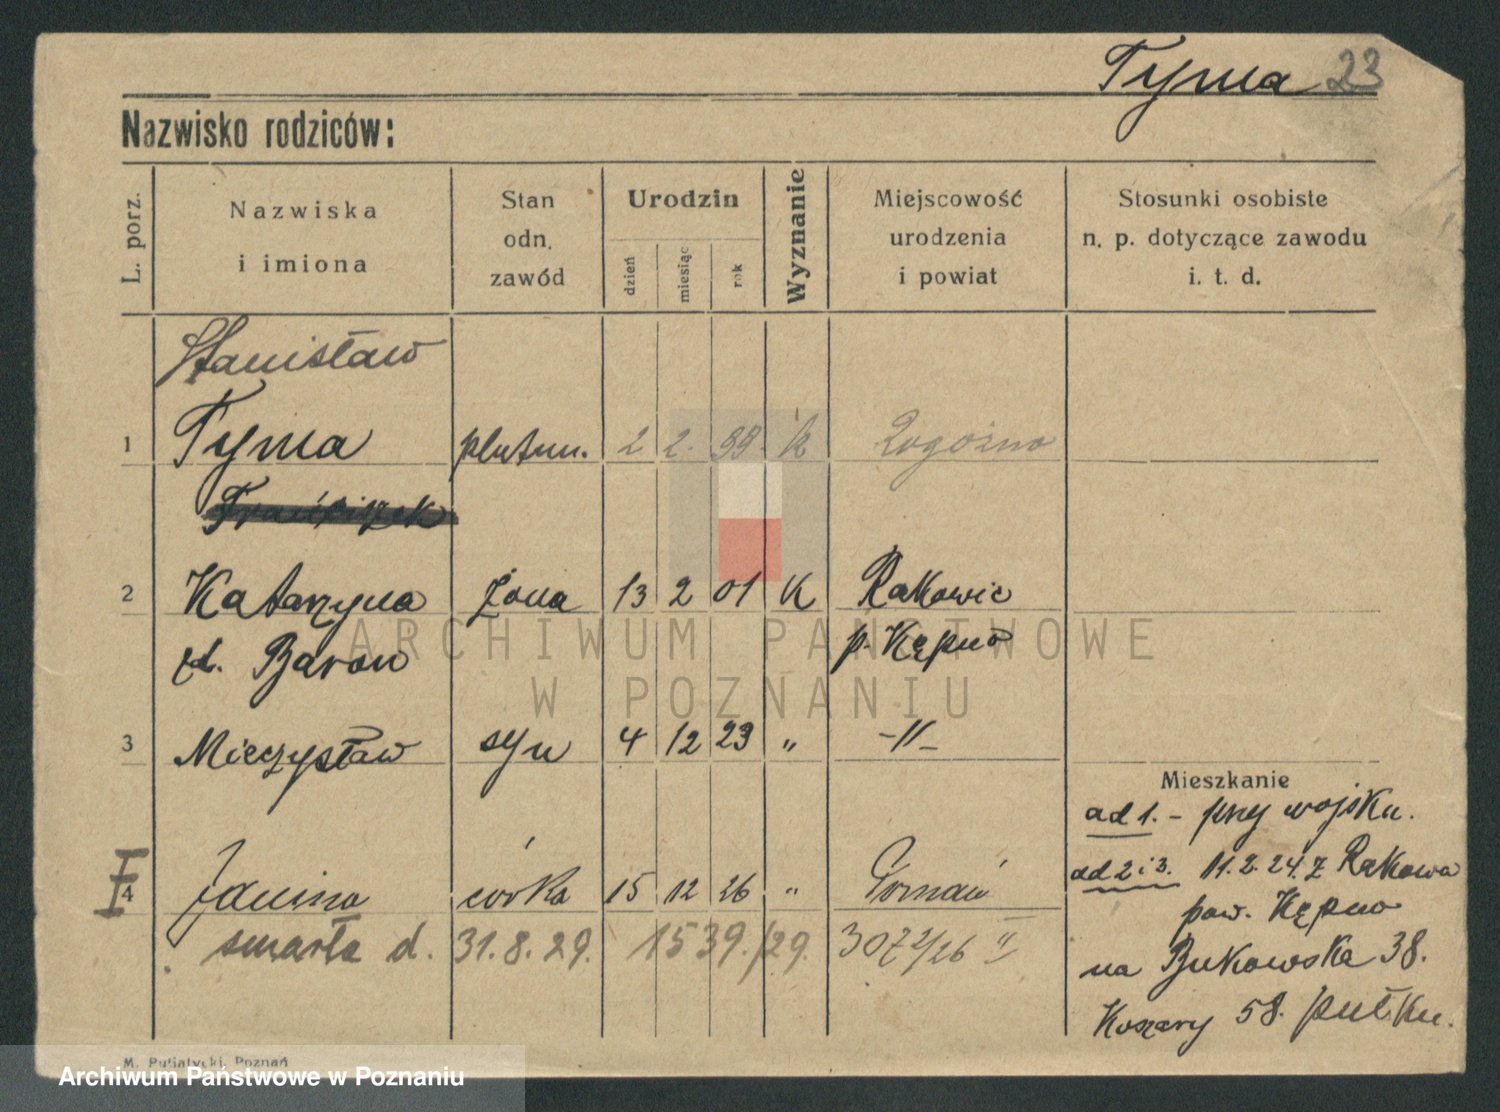 Tyma 23
Nazwisko rodziców:
L. porz.
Nazwiska
i imiona
Stan
odn.
zawód
Urodzin
dzień
miesiąc
rok
Wyznanie
Miejscowość
urodzenia
i powiat
Stosunki osobiste
n. p. dotyczące zawodu
i. t. d.
Stanisław
1 Tyma plutun. 2 2. 99. k Rogoźno
Franciszek
2 Katarzyna żona 13 2 01 k Rakowie
zd. Baron p. Kępno
3 Mieczysław syn 4 12 23 „ -"-
Mieszkanie
ad 1. - przy wojsku.
I 4 Janina córka 15 12 26 „ Poznań
ad 2 i 3. 11.2.24. z Rakowa
pow. Kępno
zmarła d. 31.8.29. 1539./29. 3072/26 II
na Bukowska 38.
Koszary 58. pułku.
ARCHIWUM PAŃSTWOWE
W POZNANIU
M. Putiatycki, Poznań
Archiwum Państwowe w Poznaniu